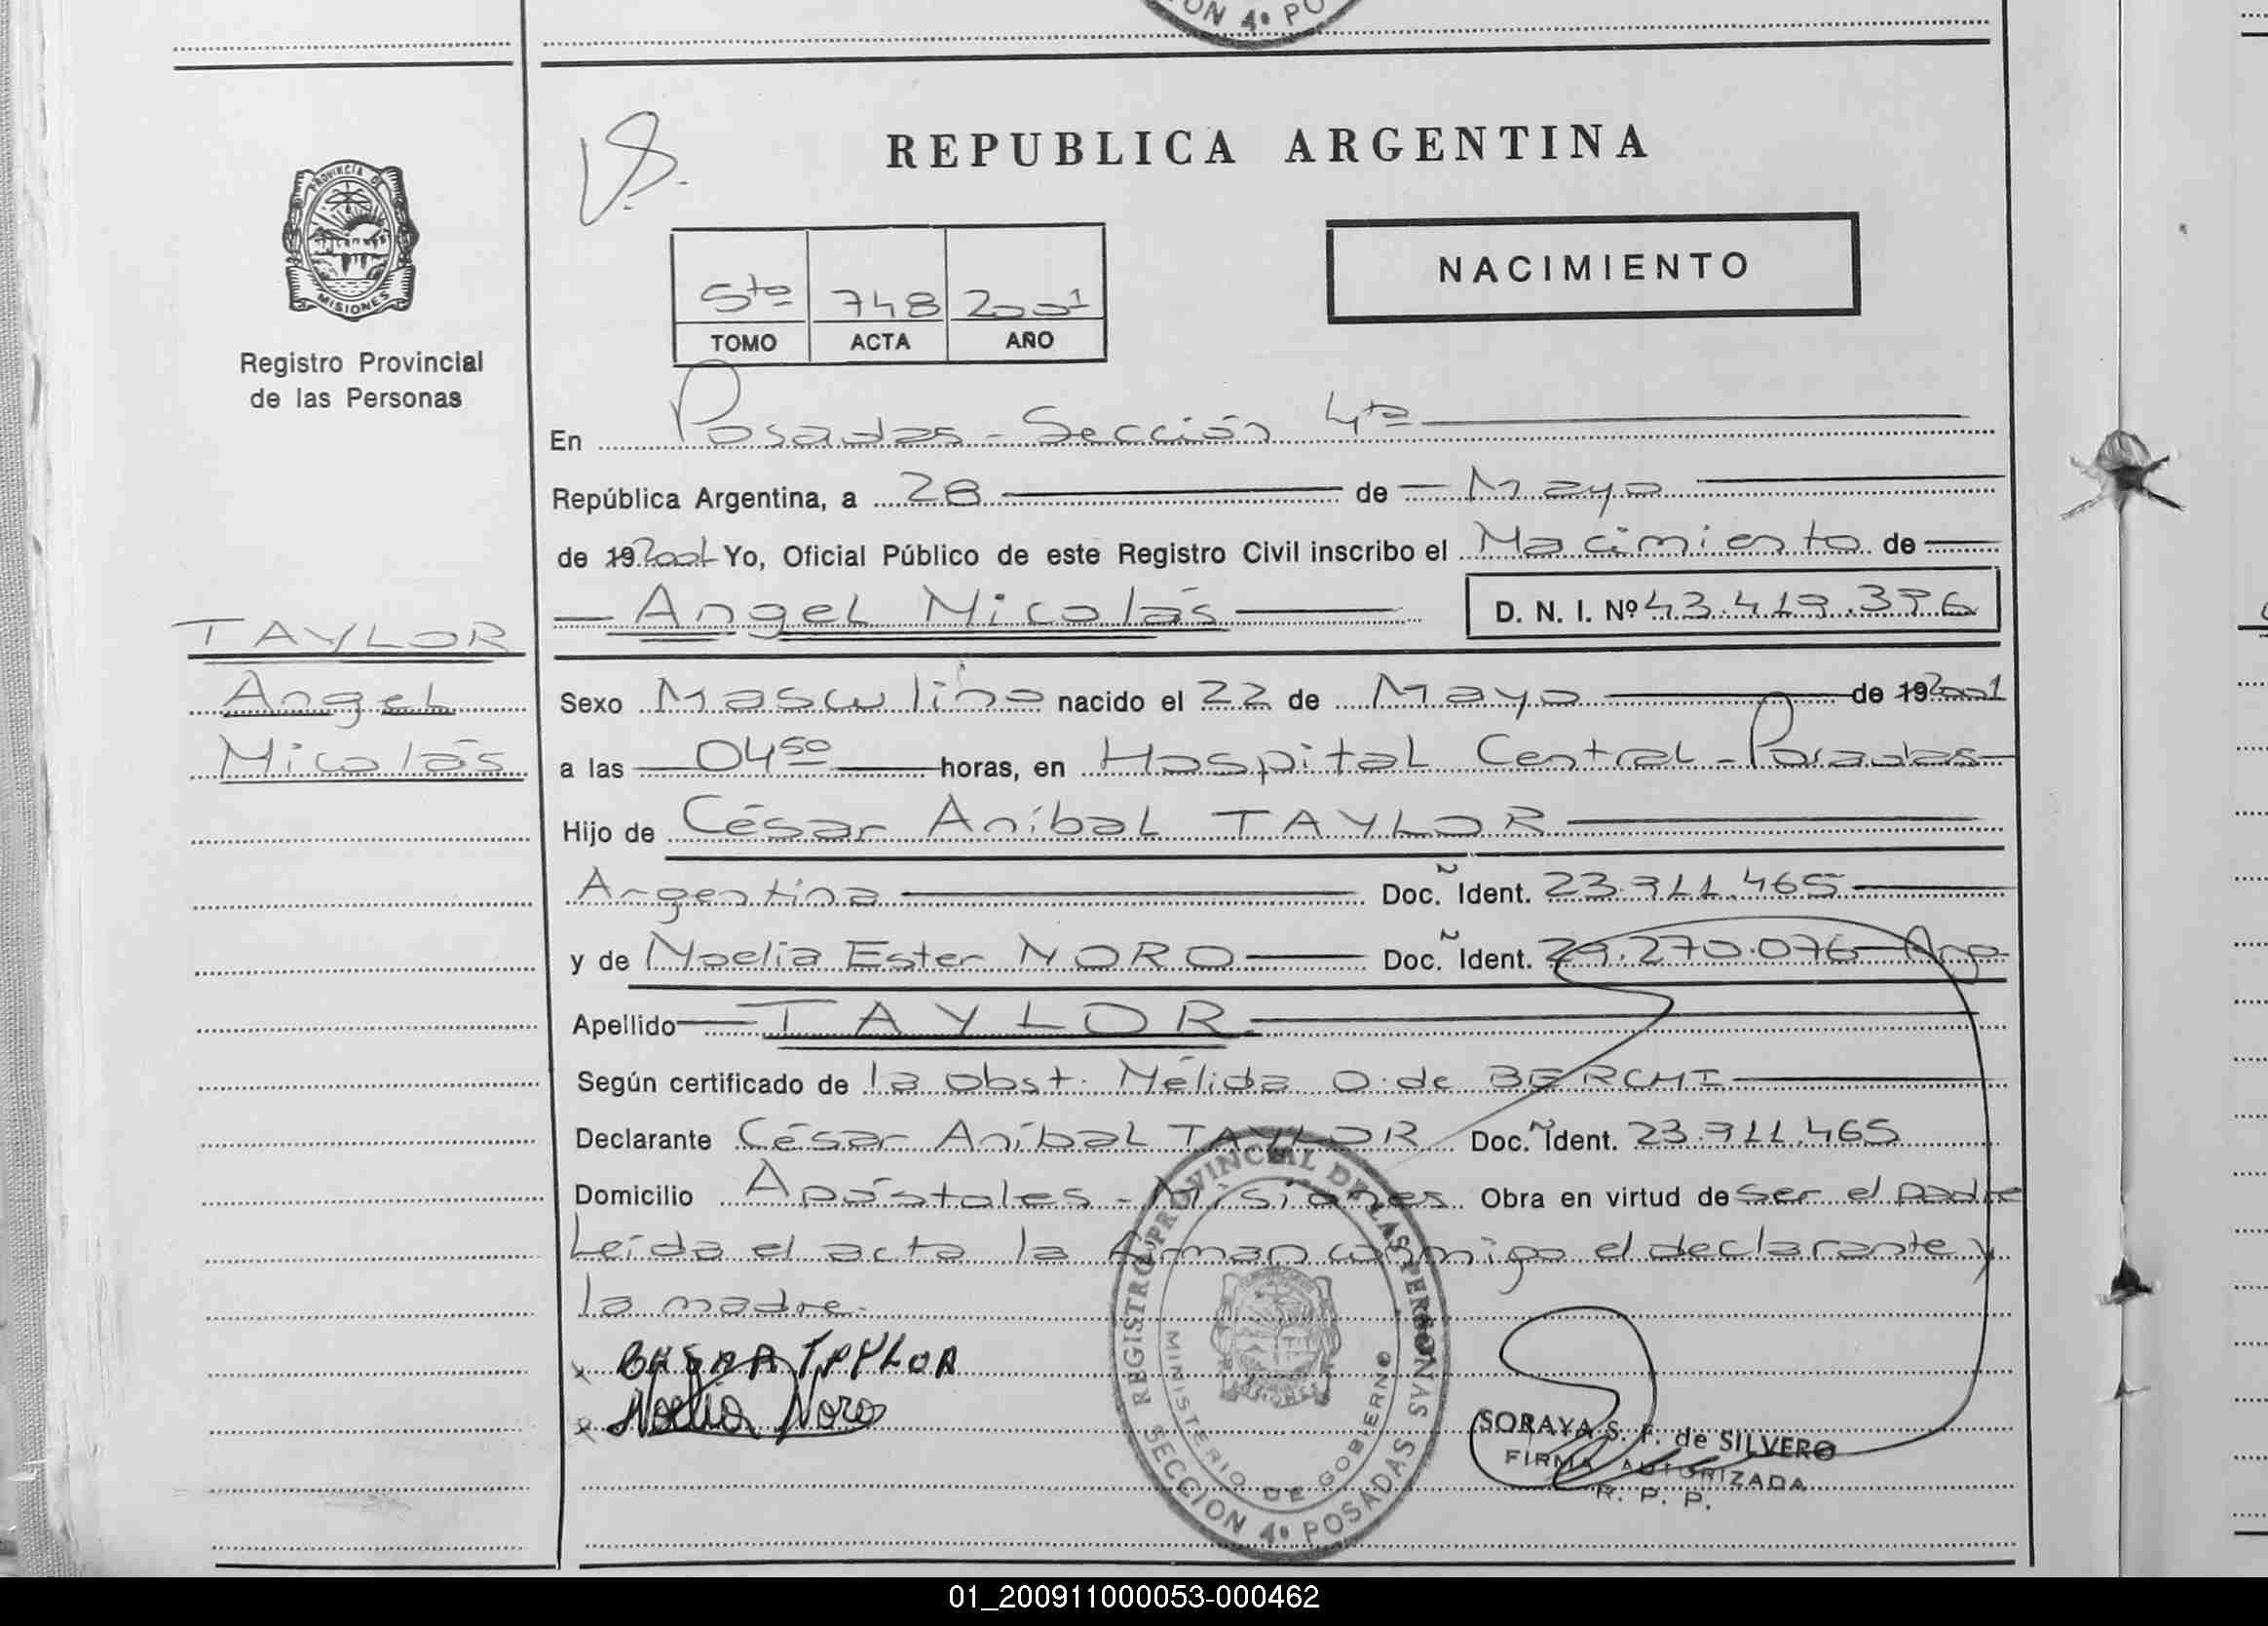 ON 4º PO
REPUBLICA ARGENTINA
PROVINCIA DE
MISIONES
Registro Provincial
de las Personas
NACIMIENTO
5to 748 2001
TOMO ACTA AÑO
En Posadas - Sección 4ta
República Argentina, a 28 de Mayo
de 19 2001 Yo, Oficial Público de este Registro Civil inscribo el Nacimiento de
Angel Nicolás D. N. I. Nº 43.419.396
TAYLOR
Angel
Nicolás
Sexo Masculino nacido el 22 de Mayo de 19 2001
a las 04 50 horas, en Hospital Central - Posadas
Hijo de César Aníbal TAYLOR
Argentina Doc. Ident. 23.911.465
y de Noelia Ester NORO Doc. Ident. 29.270.076 Arg
Apellido TAYLOR
Según certificado de la obst. Nélida O. de BERCHI
Declarante César Aníbal TAYLOR Doc. Ident. 23.911.465
Domicilio Apóstoles - Misiones Obra en virtud de ser el padre
Leída el acta la firman conmigo el declarante y
la madre.
TAYLOR
Noelia Noro
REGISTRO PROVINCIAL DE LAS PERSONAS
MINISTERIO DE GOBIERNO
SECCION 4º POSADAS
SORAYA S. F. de SILVERO
FIRMA AUTORIZADA
R. P. P.
01_200911000053-000462